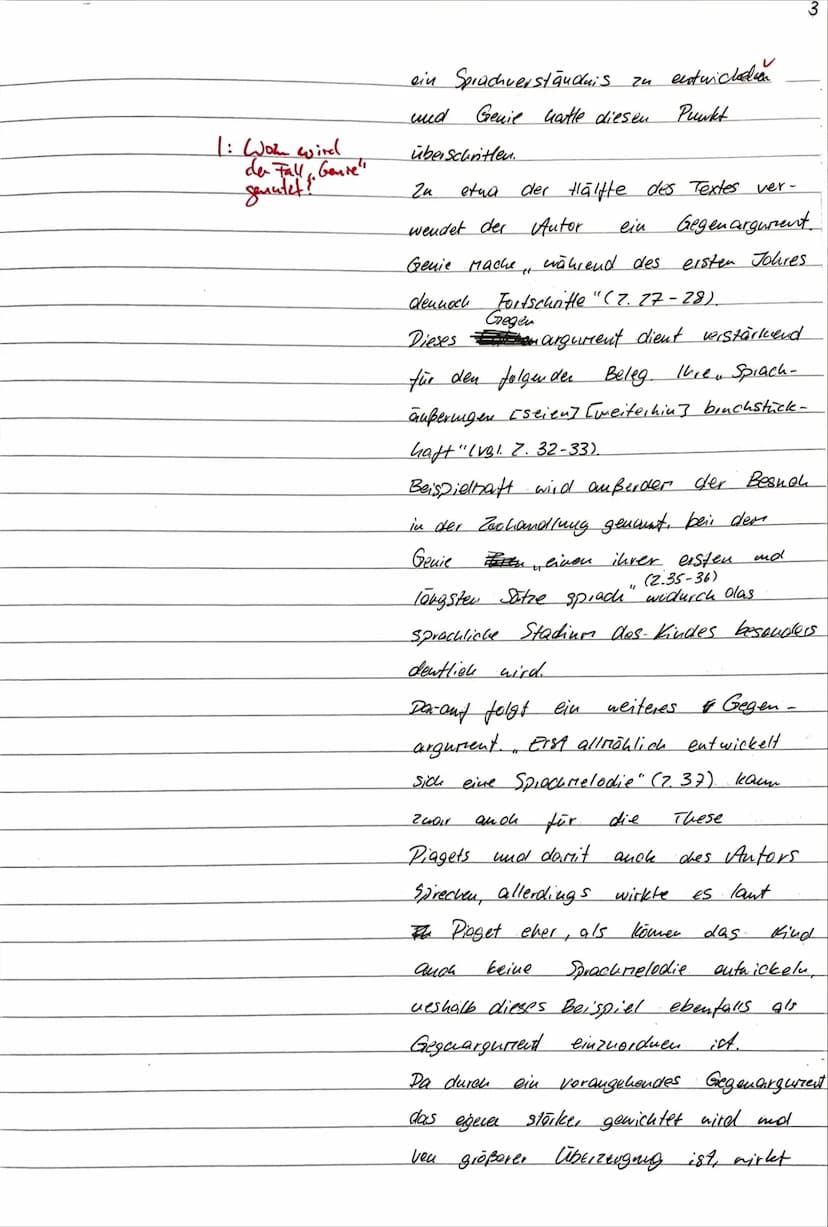 3
ein Sprachverständnis zu entwickeln
und Genie hatte diesen Punkt
überschritten.
I: Wozu wird
der Fall „Genie"
genutzt?
Zu etwa der Hälfte des Textes ver-
wendet der Autor ein Gegenargument.
Genie mache „während des ersten Jahres
dennoch Fortschritte" (Z. 27-28).
Gegen
Dieses argument dient verstärkend
für den folgenden Beleg. Ihre „Sprach-
äußerungen [seien] [weiterhin] bruchstück-
haft" (vgl. Z. 32-33).
Beispielhaft wird außerdem der Besuch
in der Zoohandlung genannt, bei dem
Genie „einen ihrer ersten und
(Z. 35-36)
längsten Sätze sprach" wodurch das
sprachliche Stadium des Kindes besonders
deutlich wird.
Darauf folgt ein weiteres Gegen-
argument. „Erst allmählich entwickelt
sich eine Sprachmelodie" (Z. 37) kann
zwar auch für die These
Piagets und damit auch des Autors
sprechen, allerdings wirkte es laut
Piaget eher, als können das Kind
auch keine Sprachmelodie entwickeln,
weshalb dieses Beispiel ebenfalls als
Gegenargument einzuordnen ist.
Da durch ein vorangehendes Gegenargument
das eigene stärker gewichtet wird und
von größerer Überzeugung ist, wirkt